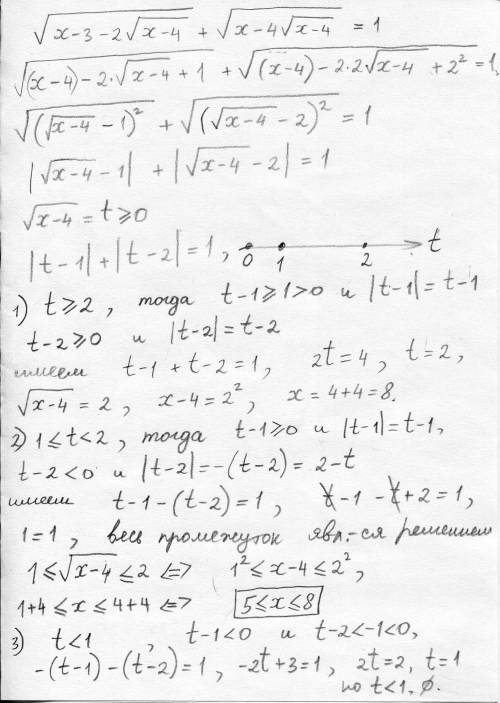 √(x-3-2√(x-4)) + √(x-4√(x-4)) = 1
√((x-4)-2·√(x-4)+1) + √((x-4)-2·2√(x-4)+2²) = 1
√((√(x-4)-1)²) + √((√(x-4)-2)²) = 1
|√(x-4)-1| + |√(x-4)-2| = 1
√(x-4) = t ⩾ 0
|t-1|+|t-2|=1, 0 1 2 t
1) t⩾2, тогда t-1⩾1>0 и |t-1|=t-1
t-2⩾0 и |t-2|=t-2
имеем t-1+t-2=1, 2t=4, t=2,
√(x-4) = 2, x-4=2², x=4+4=8.
2) 1⩽t<2, тогда t-1⩾0 и |t-1|=t-1,
t-2<0 и |t-2|=-(t-2)=2-t
имеем t-1-(t-2)=1, t-1-t+2=1,
1=1, весь промежуток явл.-ся решением
1⩽√(x-4)⩽2 <=> 1²⩽x-4⩽2²,
1+4⩽x⩽4+4 <=> 5⩽x⩽8
3) t<1, t-1<0 и t-2<-1<0,
-(t-1)-(t-2)=1, -2t+3=1, 2t=2, t=1
но t<1, ∅.